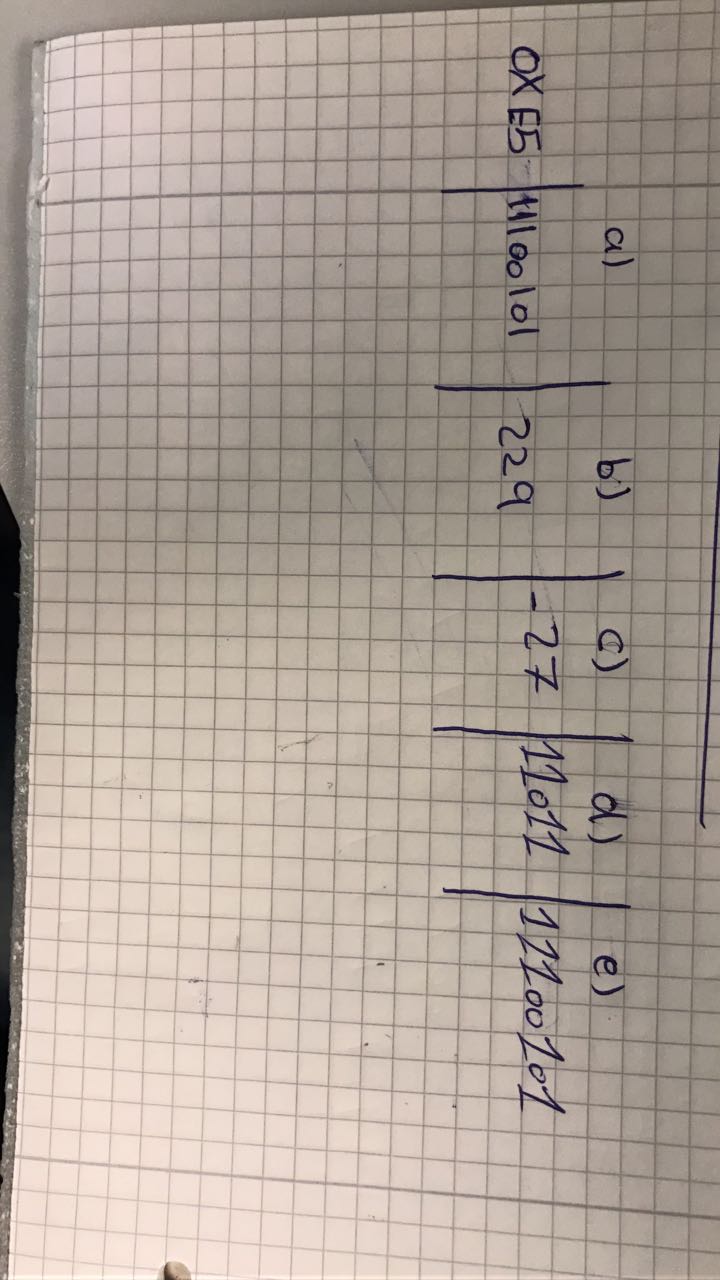 a) b) c) d) e)
0XE5 | 11100101 | 229 | -27 | 11011 | 11100101